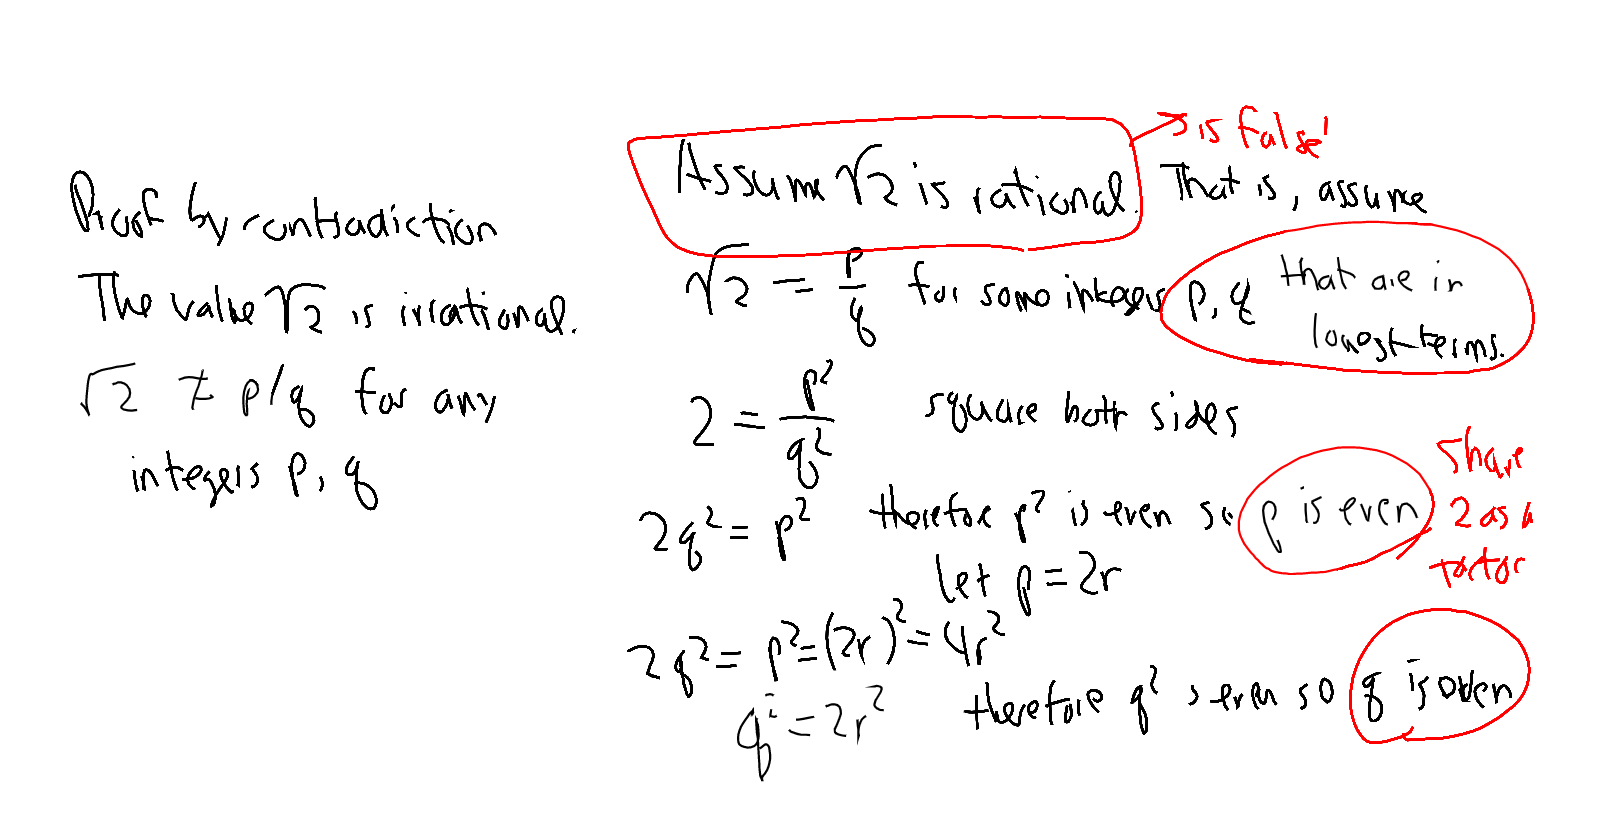 Proof by contradiction
The value √2 is irrational.
√2 ≠ p/q for any
integers p, q
Assume √2 is rational. That is, assume
is false!
√2 = p/q for some integers p, q that are in
lowest terms.
2 = p²/q² square both sides
2q² = p² therefore p² is even so p is even
let p = 2r
share
2 as a
factor
2q² = p² = (2r)² = 4r²
q² = 2r² therefore q² is even so q is even